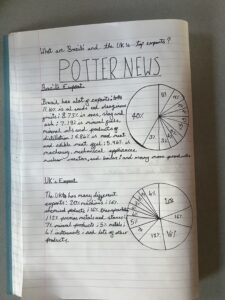 What are Brazil's and the UK's top exports?
POTTER NEWS
Brazil's Export
Brazil has a lot of exports; like
11.% is oil seeds and oleaginous
fruits; 8.73% is ores, slag and
ash; 7.19% is mineral fuels,
mineral oils and products of
distillation; 6.86% is meat
and edible meat offal; 5.96% is
machinery, mechanical appliances,
nuclear reactors, and boilers; and many more products.
40%
UK's Export
The UK has many different
exports: 20% machines; 16%
chemical products; 16% transportation
; 12% precious metals and stones;
7% mineral products; 5% metals;
4% instruments and lots of other
products.
20%
16%
16%
12%